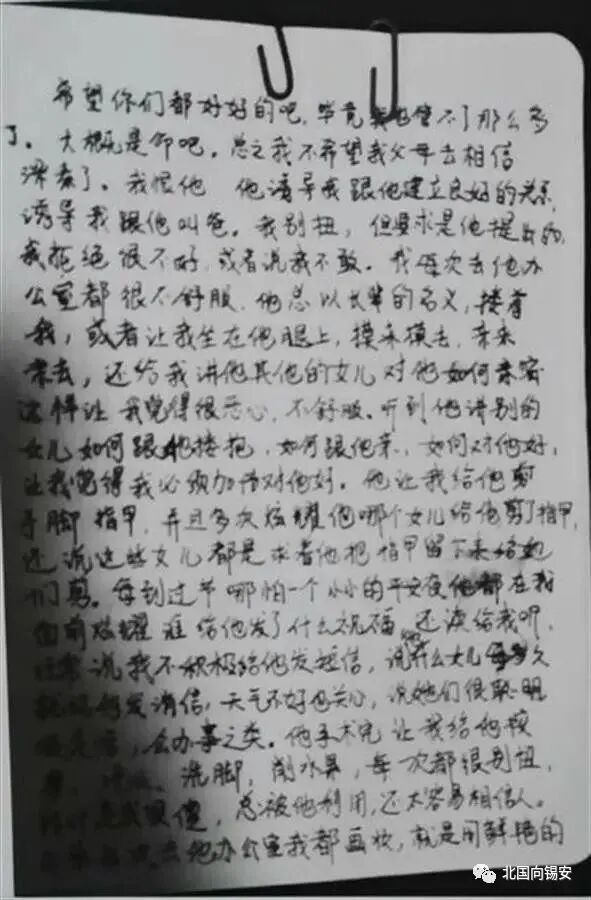 希望你们都好好的吧，毕竟我也管不了那么多
了。大概是命吧。总之我不希望我父母去相信
谁着了。我恨他 他诱导我跟他建立良好的关系，
诱导我跟他叫爸。我别扭，但要求是他提出的，
我拒绝很不好，或者说我不敢。我每次去他办
公室都很不舒服，他总以长辈的名义，搂着
我，或者让我坐在他腿上，摸来摸去，亲来
亲去，还给我讲他其他的女儿对他如何亲密
这样让我觉得很恶心，不舒服。听到他讲别的
女儿如何跟他搂抱，如何跟他亲，如何对他好，
让我觉得我必须加倍对他好。他让我给他剪
手脚指甲，并且多次炫耀他哪个女儿给他剪了指甲，
还说这些女儿都是求着他把指甲留下来给她
们剪。每到过节哪怕一个小小的平安夜他都在我
面前炫耀谁给他发了什么祝福，还读给我听，
说我不积极给他发短信，说什么女儿每多久
给他发消信，天气不好也关心，说她们很聪明
会办事之类。他手术完让我给他按
洗脚，削水果，每次都很别扭，
我很傻，总被他利用，还太容易相信人。
去他办公室我都画妆，就是用鲜艳的
北国向锡安